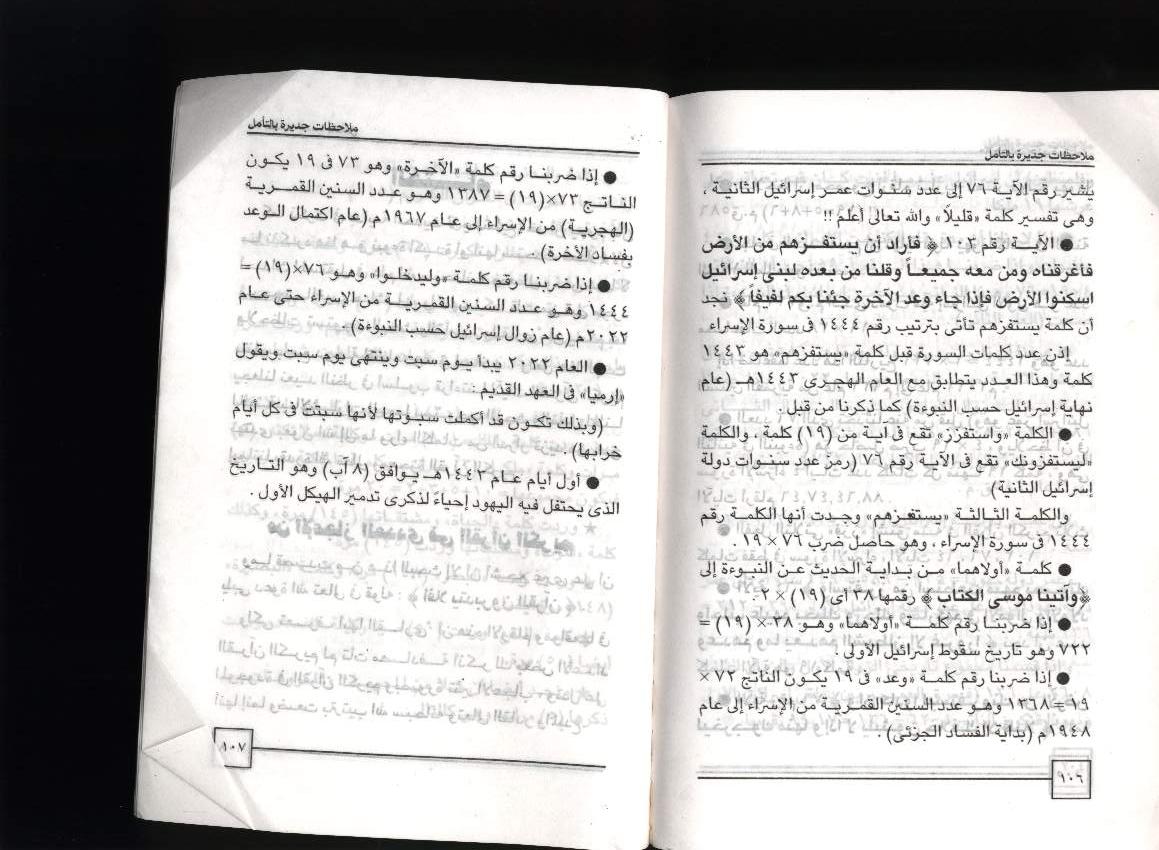 ملاحظات جديرة بالتأمل
يشير رقم الآية ٧٦ إلى عدد سنوات عمر إسرائيل الثانية ،
وهى تفسير كلمة «قليلاً» والله تعالى أعلم !!
● الآية رقم ١٠٣ ﴿ فأراد أن يستفزهم من الأرض
فأغرقناه ومن معه جميعاً وقلنا من بعده لبنى إسرائيل
اسكنوا الأرض فإذا جاء وعد الآخرة جئنا بكم لفيفاً ﴾ نجد
أن كلمة يستفزهم تأتى بترتيب رقم ١٤٤٤ فى سورة الإسراء
إذن عدد كلمات السورة قبل كلمة «يستفزهم» هو ١٤٤٣
كلمة وهذا العدد يتطابق مع العام الهجرى ١٤٤٣هـ (عام
نهاية إسرائيل حسب النبوءة) كما ذكرنا من قبل .
● الكلمة «واستفزز» تقع فى آية من (١٩) كلمة ، والكلمة
«ليستفزونك» تقع فى الآية رقم ٧٦ (رمز عدد سنوات دولة
إسرائيل الثانية)
والكلمة الثالثة «يستفزهم» وجدت أنها الكلمة رقم
١٤٤٤ فى سورة الإسراء ، وهو حاصل ضرب ٧٦ × ١٩ .
● كلمة «أولاهما» من بداية الحديث عن النبوءة إلى
﴿وآتينا موسى الكتاب ﴾ رقمها ٣٨ أى (١٩) × ٢
● إذا ضربنا رقم كلمة «أولاهما» وهو ٣٨ × (١٩) =
٧٢٢ وهو تاريخ سقوط إسرائيل الأولى .
● إذا ضربنا رقم كلمة «وعد» فى ١٩ يكون الناتج ٧٢ ×
١٩ = ١٣٦٨ وهو عدد السنين القمرية من الإسراء إلى عام
١٩٤٨م (بداية الفساد الجزئى) .
١٠٦
ملاحظات جديرة بالتأمل
● إذا ضربنا رقم كلمة «الآخرة» وهو ٧٣ فى ١٩ يكون
الناتج ٧٣×(١٩) = ١٣٨٧ وهو عدد السنين القمرية
(الهجرية) من الإسراء إلى عام ١٩٦٧م (عام اكتمال الوعد
بفساد الأخرة) .
● إذا ضربنا رقم كلمة «وليدخلوا» وهو ٧٦×(١٩) =
١٤٤٤ وهو عدد السنين القمرية من الإسراء حتى عام
٢٠٢٢م (عام زوال إسرائيل حسب النبوءة) .
● العام ٢٠٢٢ يبدأ يوم سبت وينتهى يوم سبت ويقول
«إرميا» فى العهد القديم :
(وبذلك تكون قد أكملت سبوتها لأنها سبتت فى كل أيام
خرابها) .
● أول أيام عام ١٤٤٣هـ يوافق (٨ آب) وهو التاريخ
الذى يحتفل فيه اليهود إحياءً لذكرى تدمير الهيكل الأول .
١٠٧